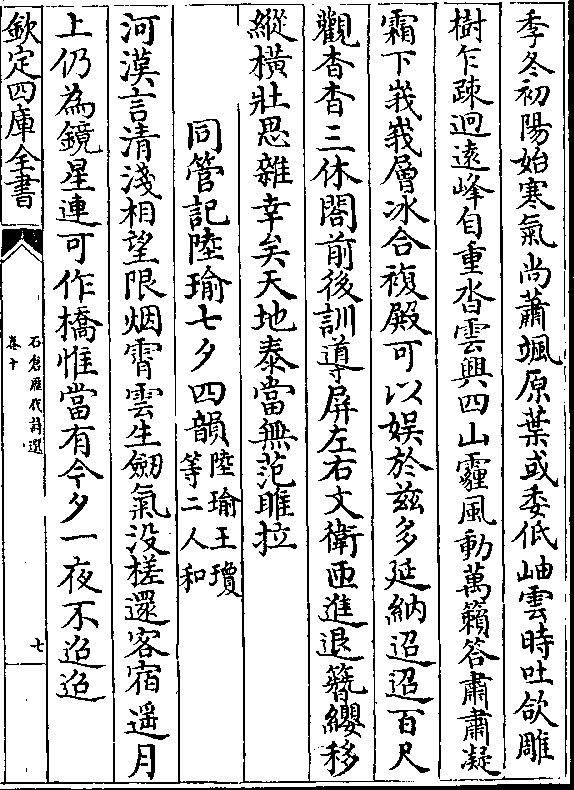 季冬初陽始寒氣尚蕭颯原葉或委低岫雲時吐欱雕
樹乍疎迥遠峰自重沓雲興四山霾風動萬籟答肅肅凝
霜下峩峩層冰合複殿可以娱於兹多延納迢迢百尺
觀杳杳三休閤前後訓導屏左右文衛匝進退簪纓移
縱橫壯思雜幸矣天地泰當無范雎拉
同管記陸瑜七夕四韻陸瑜王瓊等二人和
河漢言清淺相望限烟霄雲生劒氣没槎還客宿遥月
上仍為鏡星連可作橋惟當有今夕一夜不迢迢
欽定四庫全書
石倉歷代詩選
卷十
七